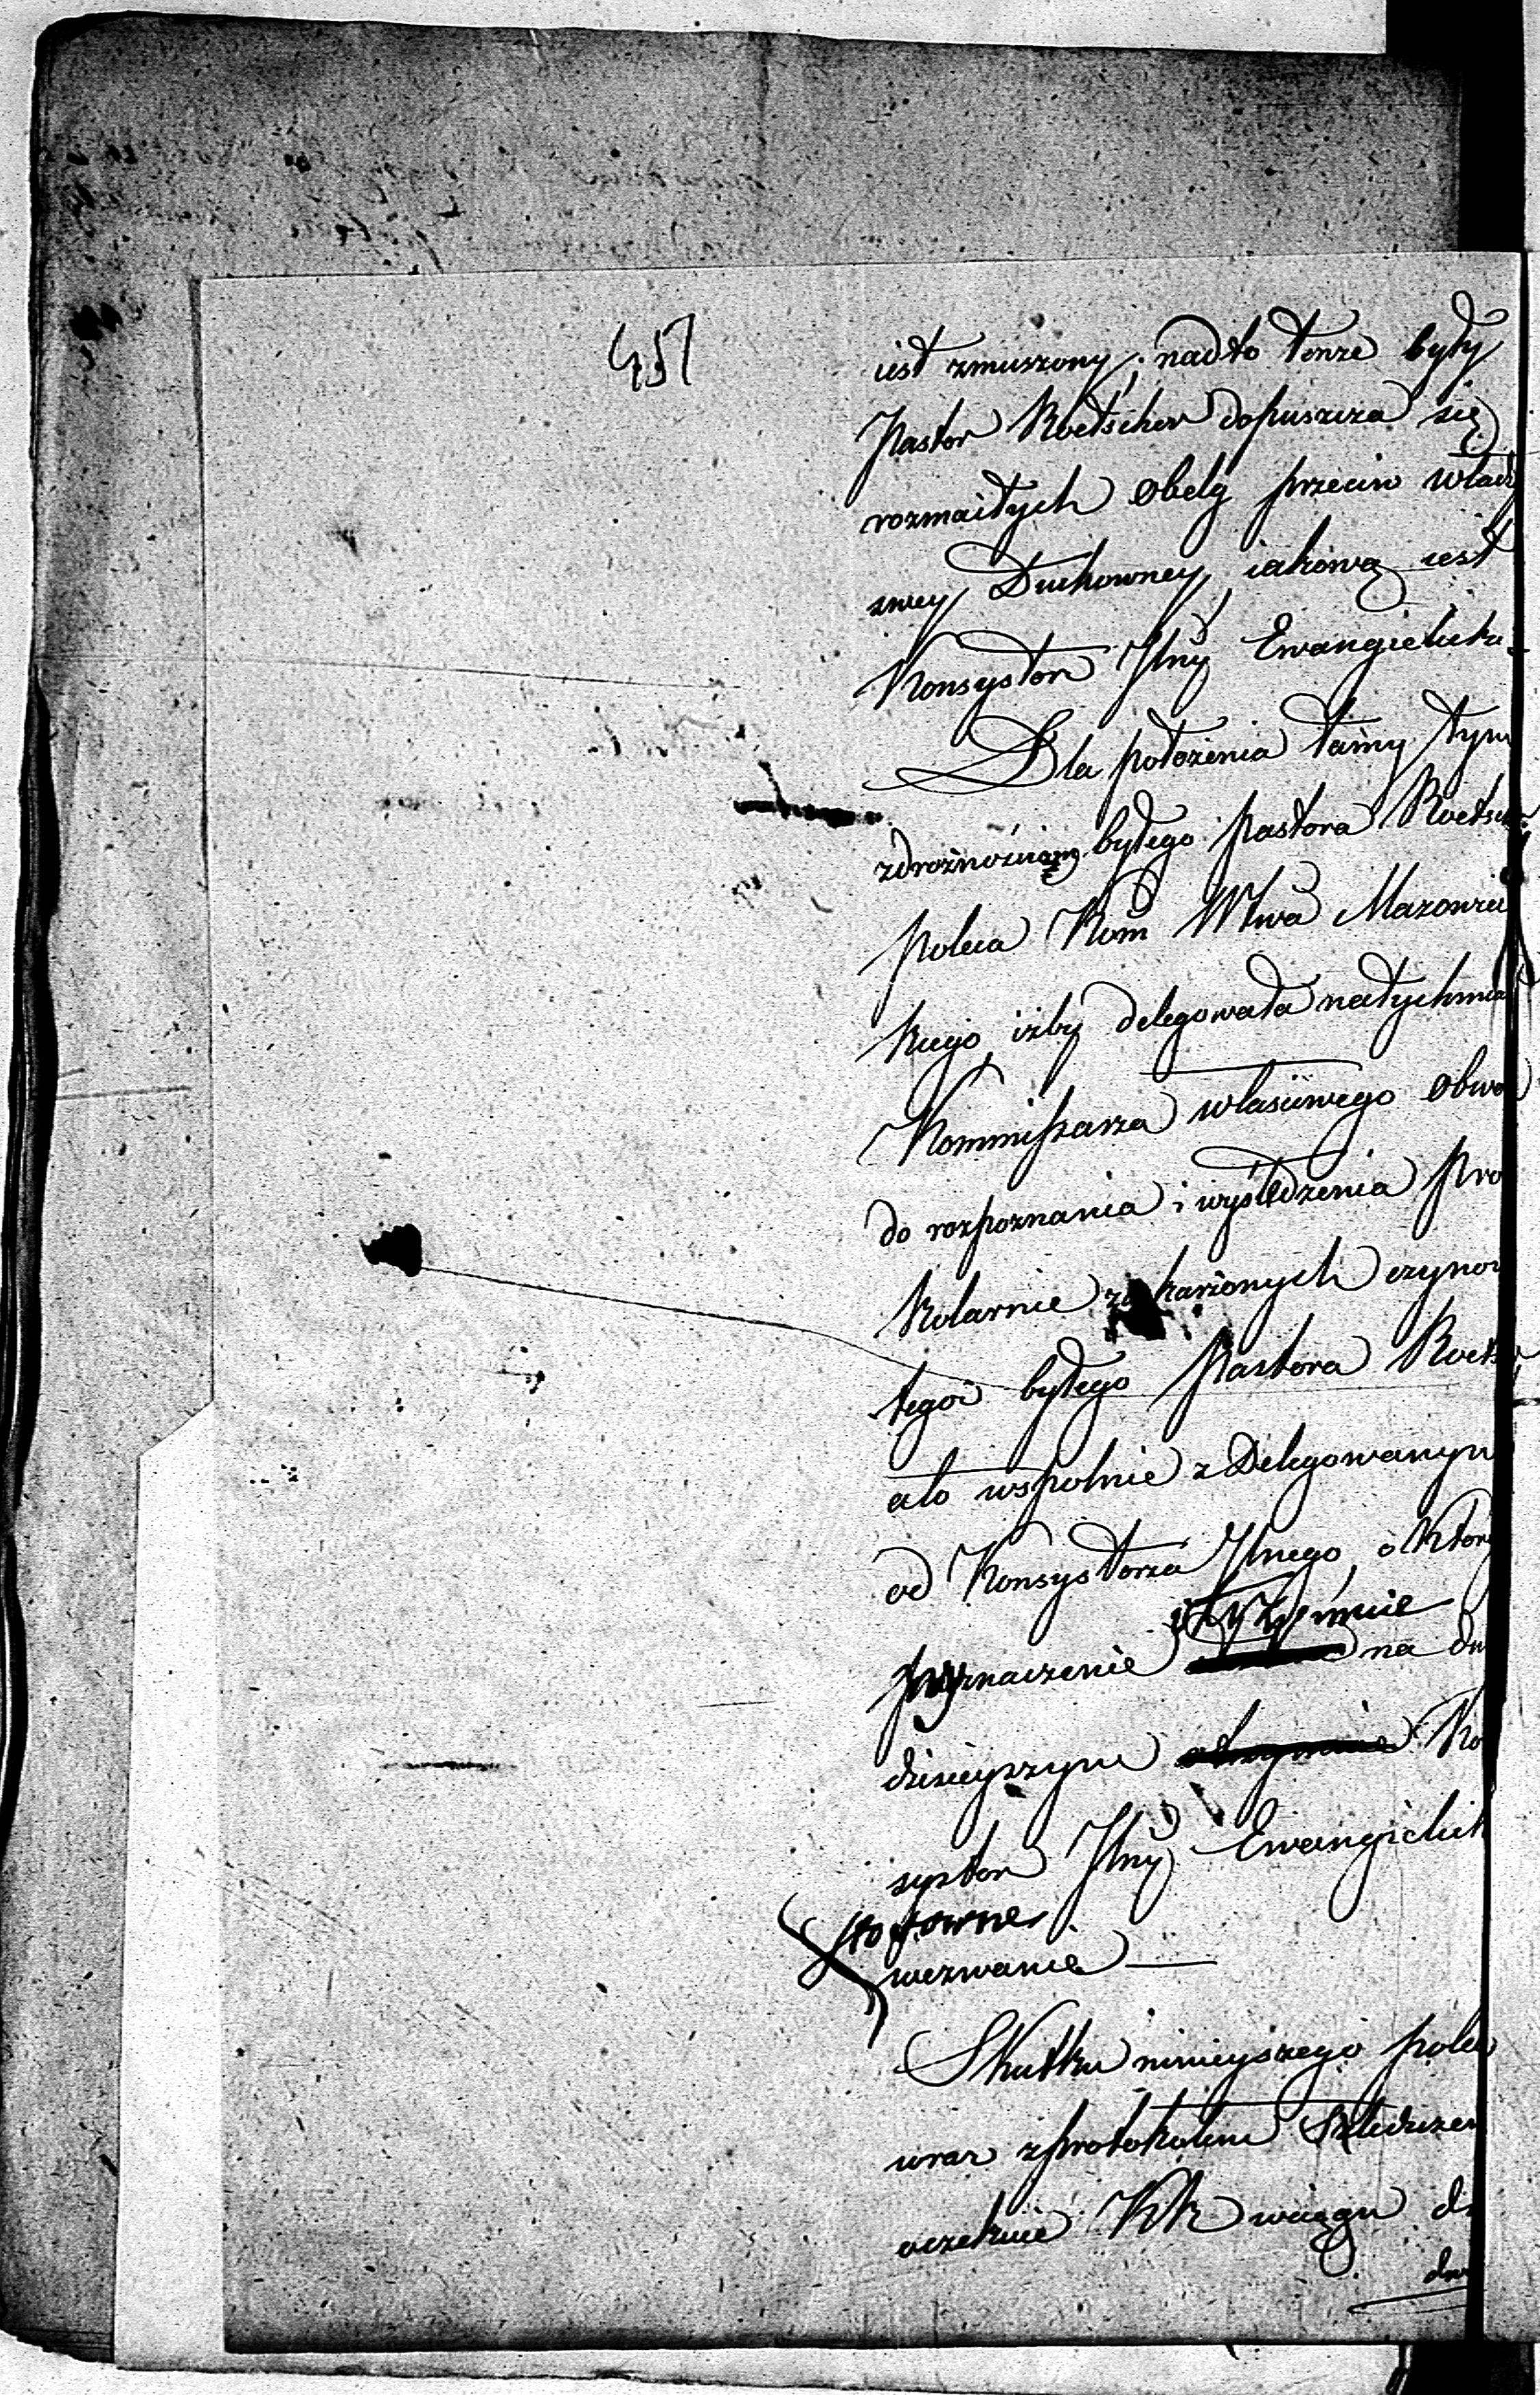 457
iest zmuszony; nadto tenze były
Pastor Roetscher dopuszcza się
rozmaitych obelg przeciw wład
swey Duchowney, iakową iest
Konsystorz Jlny Ewangielicki
Dla położenia tamy tym
zdrożnościom byłego Pastora Roetsch
poleca Kom Wtwa Mazowiec
kiego, iżby delegowała natychmia
Kommissarza właściwego obwo
do rozpoznania i wyśledzenia pro
kolarnie zaskarżonych czynow
tegoż byłego Pastora Roets
a to wspolnie z Delegowanym
od Konsystorza Jlnego, o ktor
otrzymuie
wyznaczenie na dn
dzisieyszym Ko
systorz Jlny Ewangielick
stosowne
wezwanie —
Skutku ninieyszego pole
wraz z protokołem Szledzen
oczekuie KR w ciągu d
dw